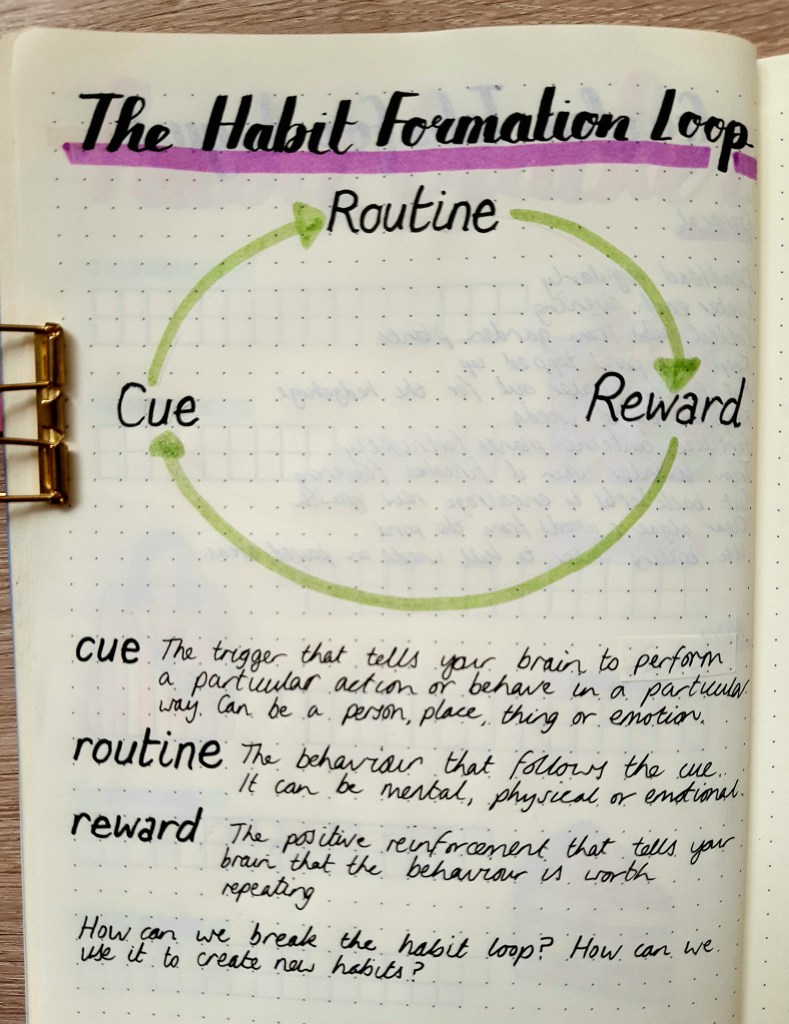 The Habit Formation Loop
Routine
Cue
Reward
cue The trigger that tells your brain to perform
a particular action or behave in a particular
way. Can be a person, place, thing or emotion.
routine The behaviour that follows the cue.
It can be mental, physical or emotional.
reward The positive reinforcement that tells your
brain that the behaviour is worth
repeating
How can we break the habit loop? How can we
use it to create new habits?